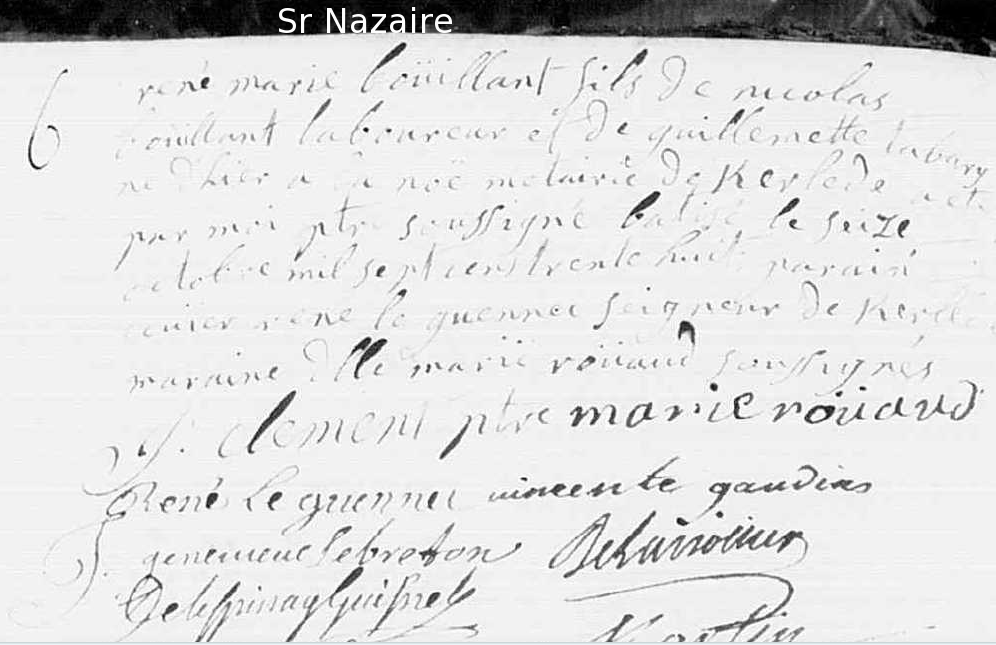 Sr Nazaire
6
rené marie boüillant fils de nicolas
boüillant laboureur et de guillemette tabary
né d'hier a la noë metairie de Kerlede a eté
par moi ptre soussigné batisé le seize
octobre mil sept cens trente huit parain
ecuier rené le guennec seigneur de Kerlede
maraine dlle marie roüaud soussignés
J. clement ptre marie roüaud
René Le guennec vincente gaudin
genevieve lebreton
Martin